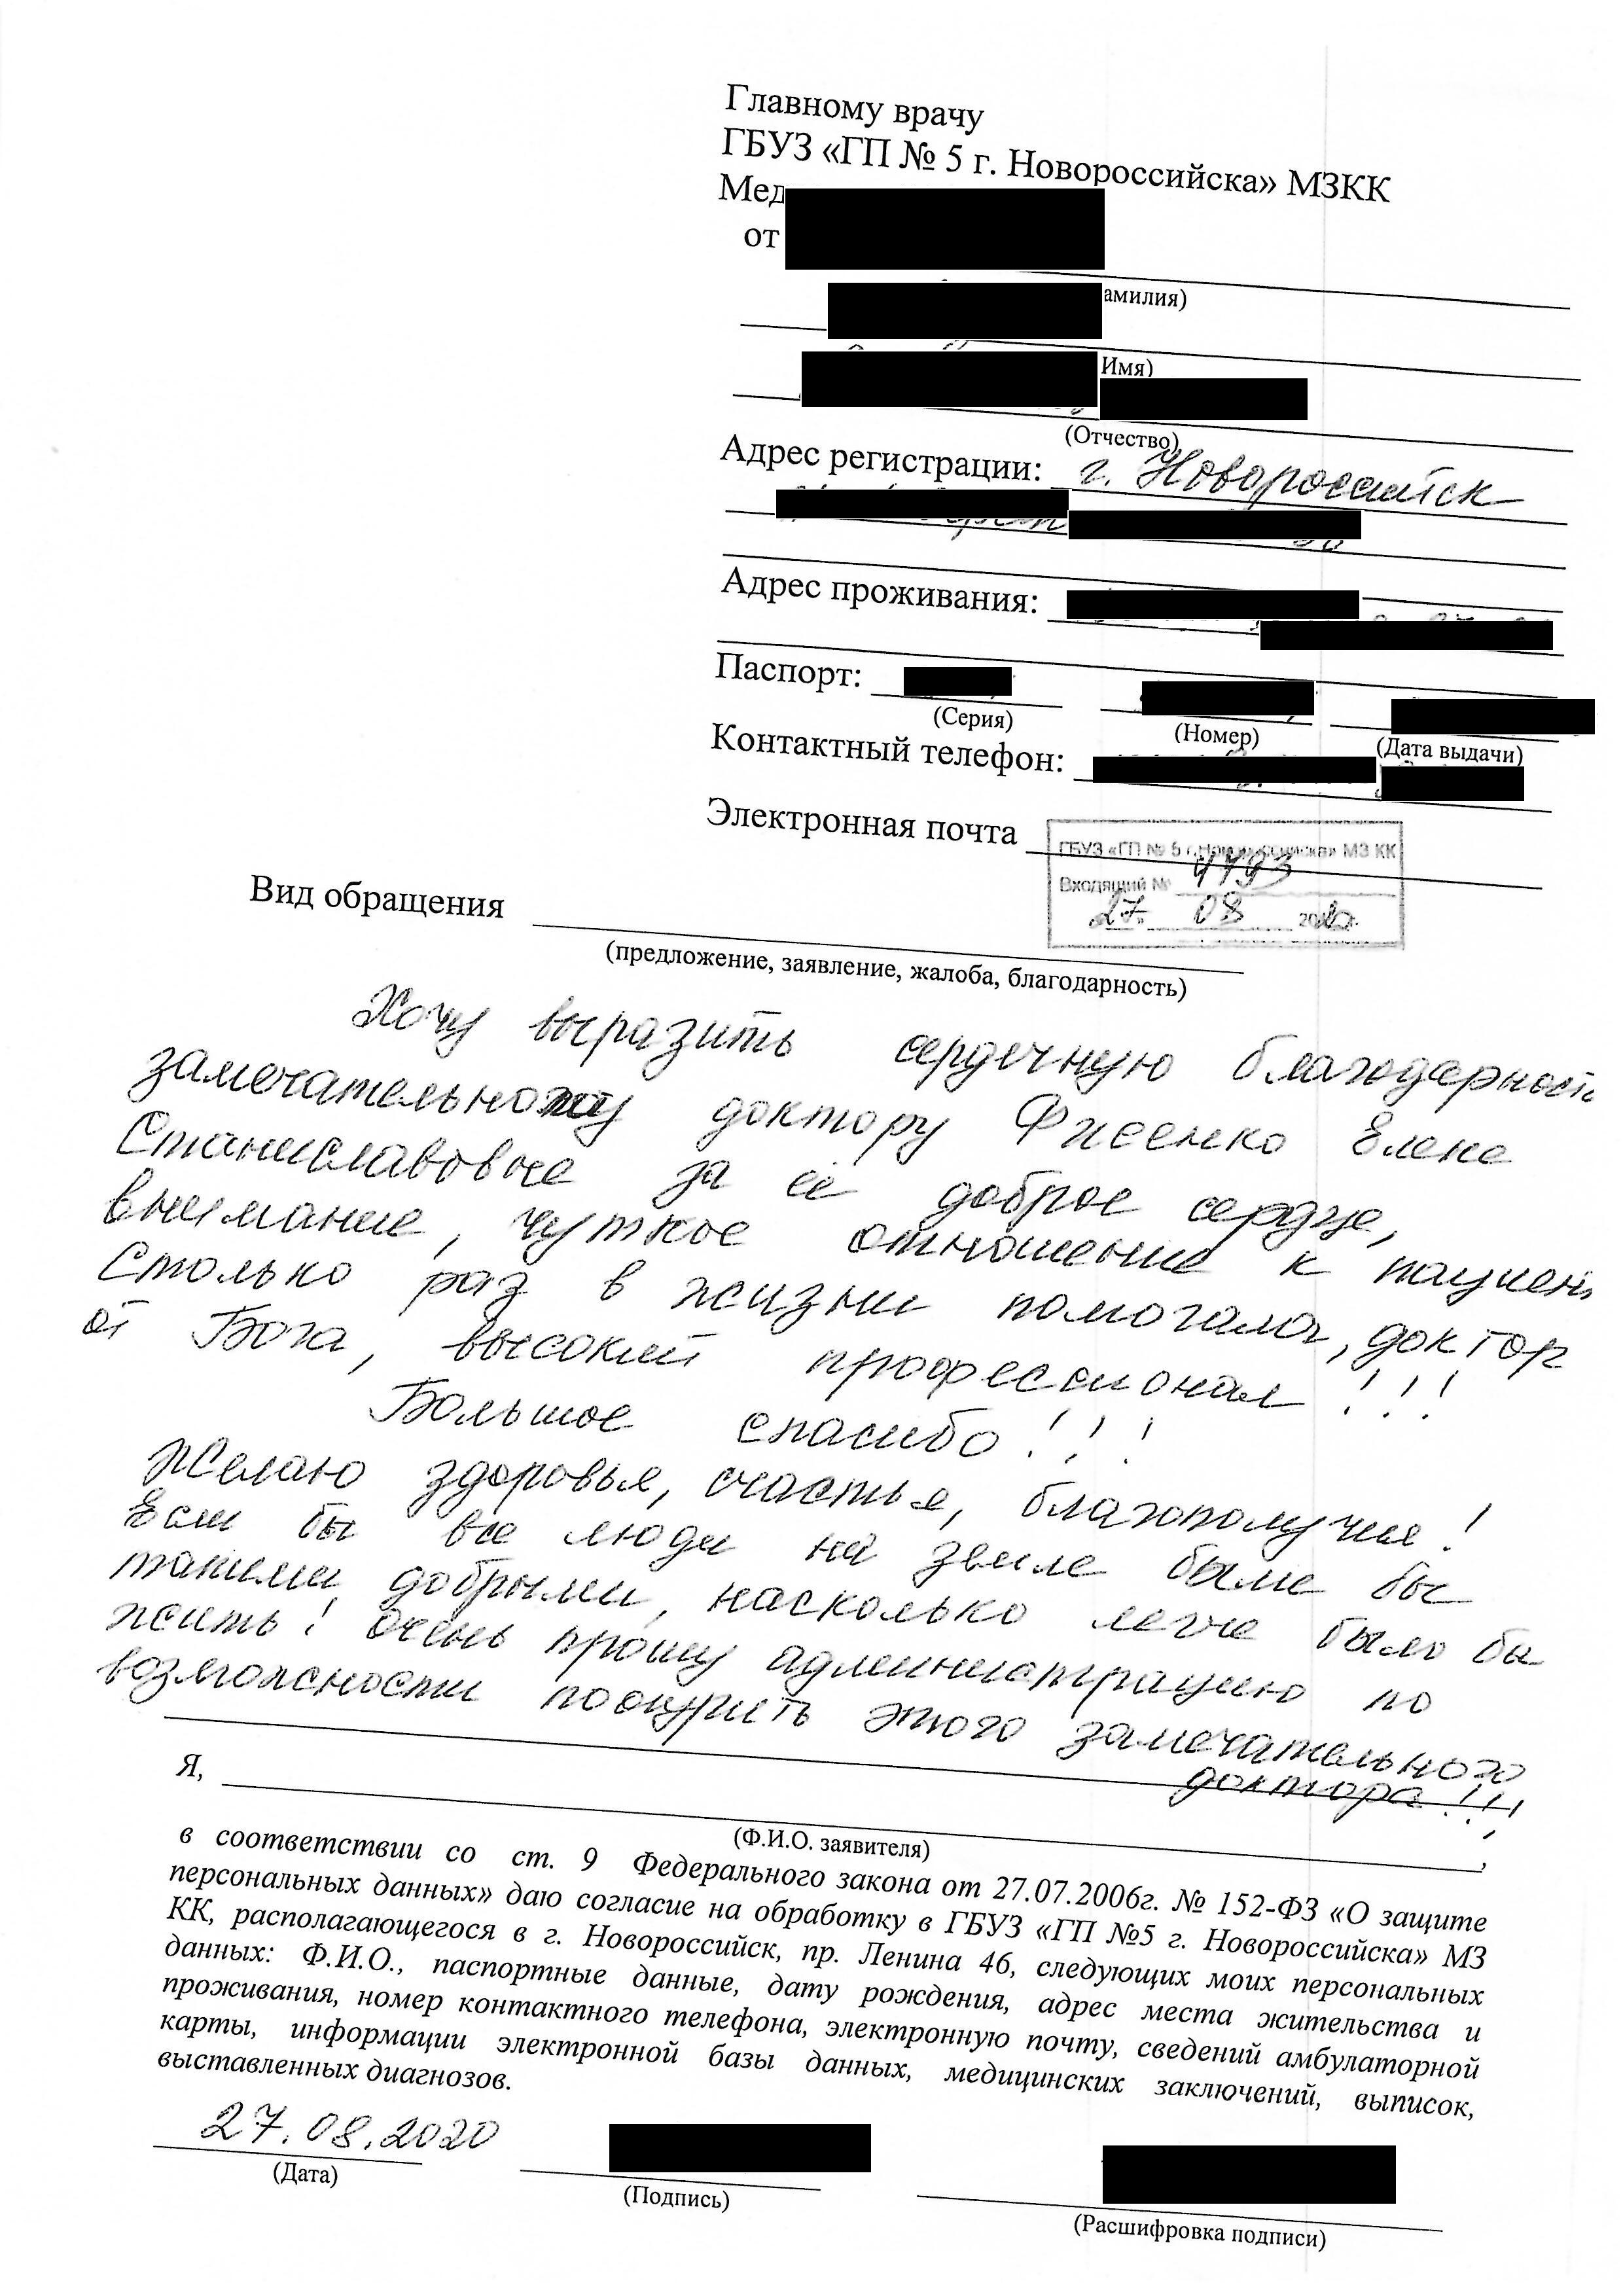 Главному врачу
ГБУЗ «ГП № 5 г. Новороссийска» МЗКК
Мед
от
амилия)
Имя)
(Отчество)
Адрес регистрации: г. Новороссийск
Адрес проживания:
Паспорт:
(Серия) (Номер) (Дата выдачи)
Контактный телефон:
Электронная почта
ГБУЗ «ГП № 5 г.Новороссийска» МЗ КК
Входящий № 4793
27. 08 2020г.
Вид обращения
(предложение, заявление, жалоба, благодарность)
Хочу выразить сердечную благодарность
замечательному доктору Фисенко Елене
Станиславовне за её доброе сердце,
внимание, чуткое отношение к пациен
Столько раз в жизни помогала, доктор
от Бога, высокий профессионал!!!
Большое спасибо!!!
Желаю здоровья, счастья, благополучия!
Если бы все люди на земле были бы
такими добрыми, насколько легче было бы
жить! Очень прошу администрацию по
возможности поощрить этого замечательного
доктора!!!
Я,
(Ф.И.О. заявителя)
в соответствии со ст. 9 Федерального закона от 27.07.2006г. № 152-ФЗ «О защите
персональных данных» даю согласие на обработку в ГБУЗ «ГП №5 г. Новороссийска» МЗ
КК, располагающегося в г. Новороссийск, пр. Ленина 46, следующих моих персональных
данных: Ф.И.О., паспортные данные, дату рождения, адрес места жительства и
проживания, номер контактного телефона, электронную почту, сведений амбулаторной
карты, информации электронной базы данных, медицинских заключений, выписок,
выставленных диагнозов.
27.08.2020
(Дата) (Подпись) (Расшифровка подписи)